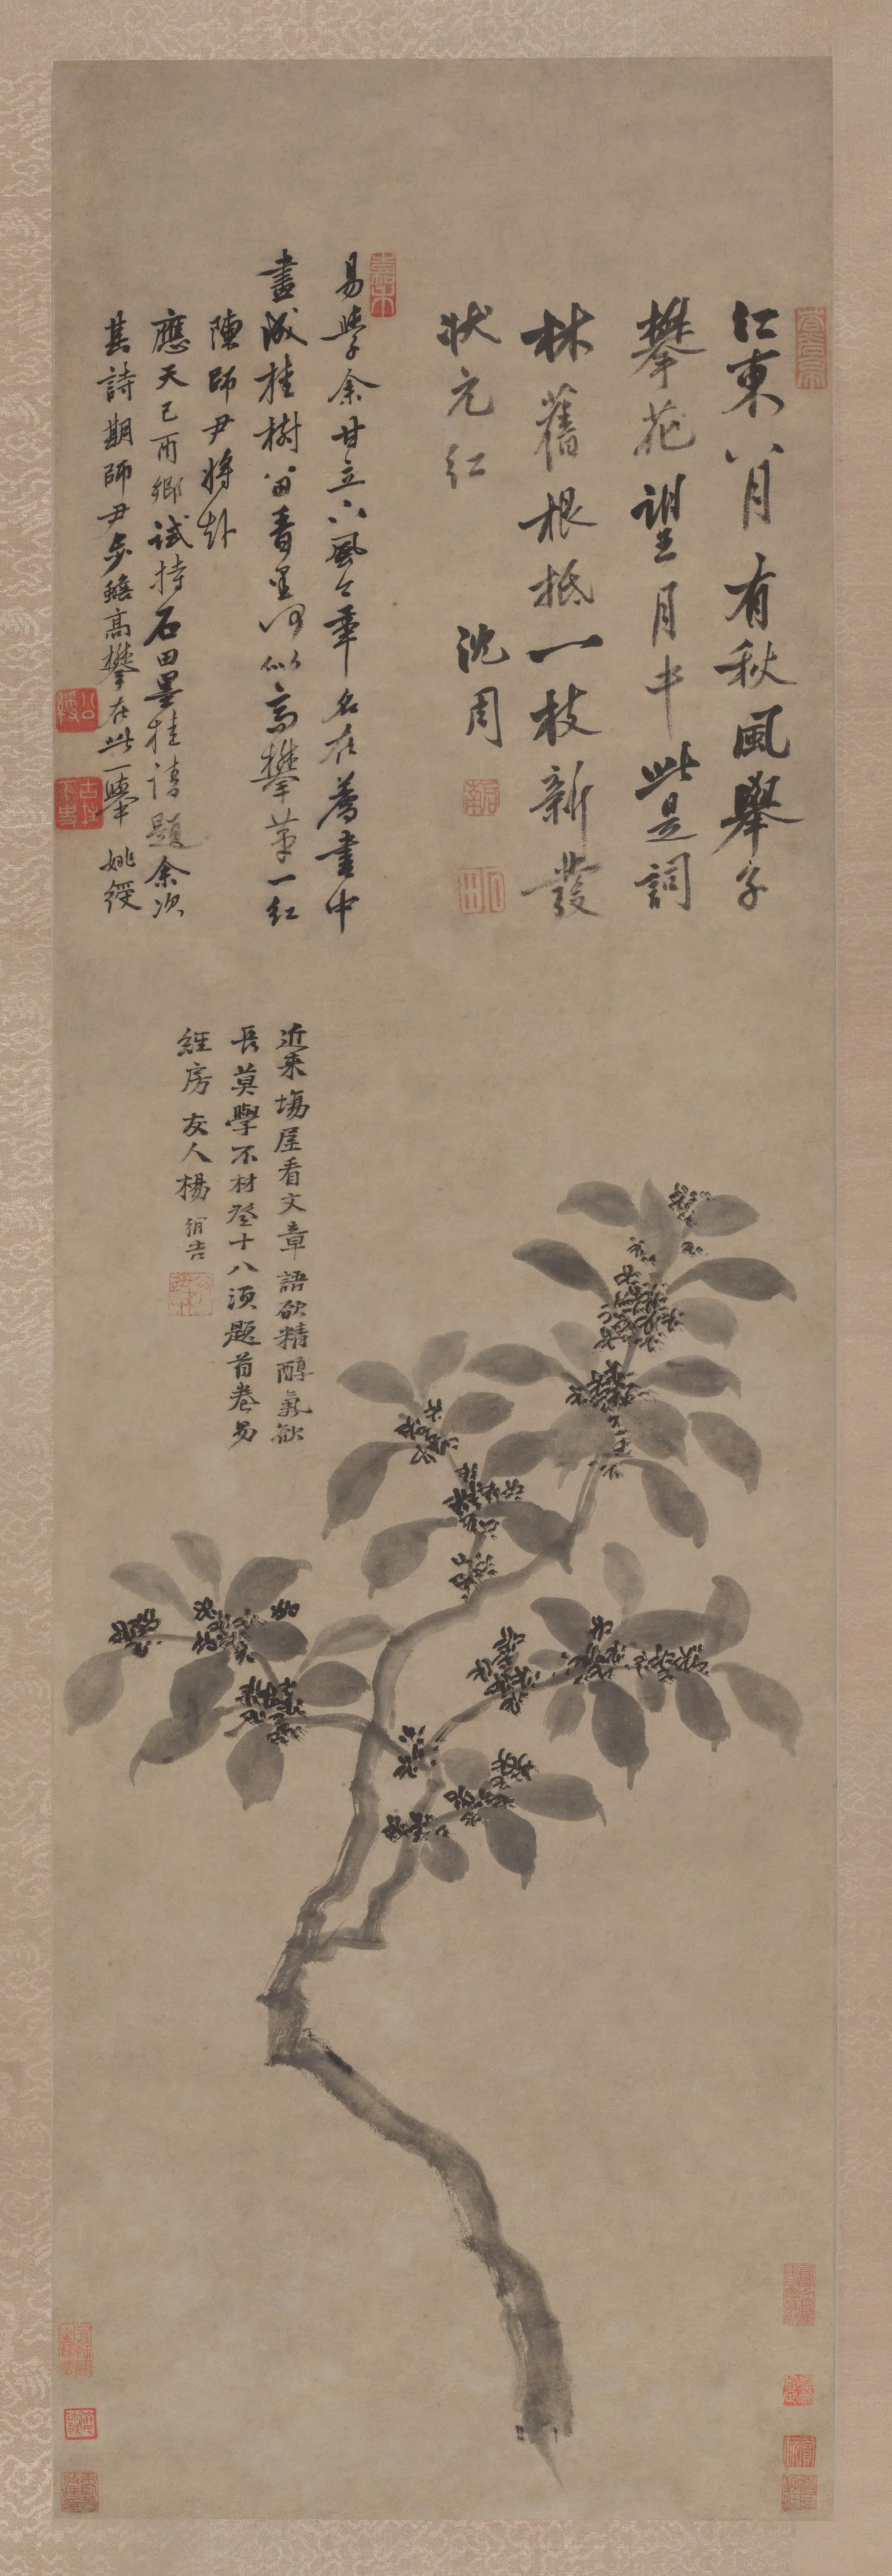 江東八月有秋風舉子
攀花望月中此是詞
林舊根柢一枝新發
狀元紅
沈周
易學余甘立下風今年名在薦書中
畫成桂樹留看里何似高攀第一紅
陳師尹將赴
應天己酉鄉試持石田墨桂請題余次
其詩期師尹步蟾高攀在此一舉 姚綬
近來場屋看文章語欲精醇氣欲
長莫學不材登十八須題首卷易
經房 友人楊循吉